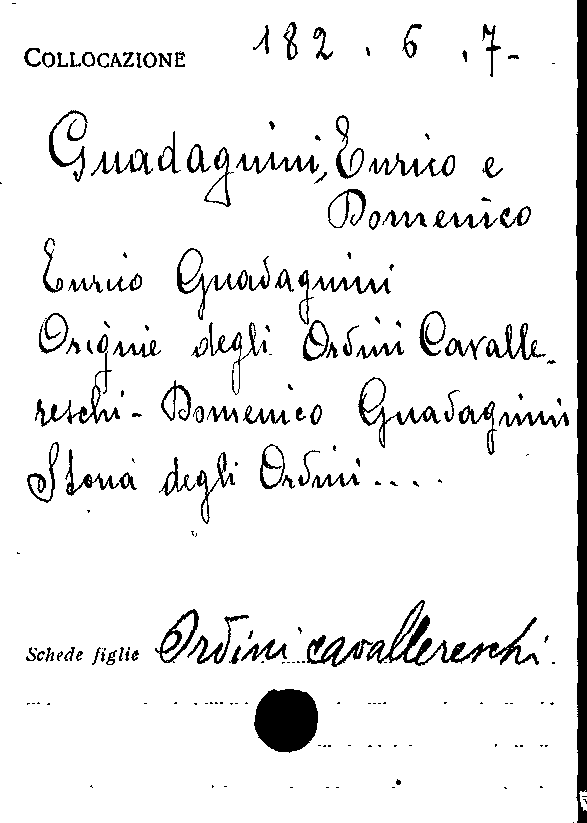 COLLOCAZIONE 182 . 6 . 7-
Guadagnini, Enrico e
Domenico
Enrico Guadagnini
Origine degli Ordini Cavalle-
reschi - Domenico Guadagnini
Storia degli Ordini....
Schede figlie Ordini cavallereschi.